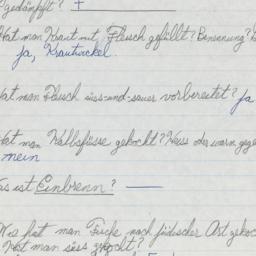 gedämpft? +
Hat man Kraut mit Fleisch gefüllt? Benennung?
ja, Krautwickel.
Hat man Fleisch süss-und-sauer vorbereitet? ja
Hat man Kalbsfüsse gekocht? Heiss oder warm
nein
Was ist Einbrenn? —
Wie hat man Fische nach jüdischer Art
Hat man süss gekocht?